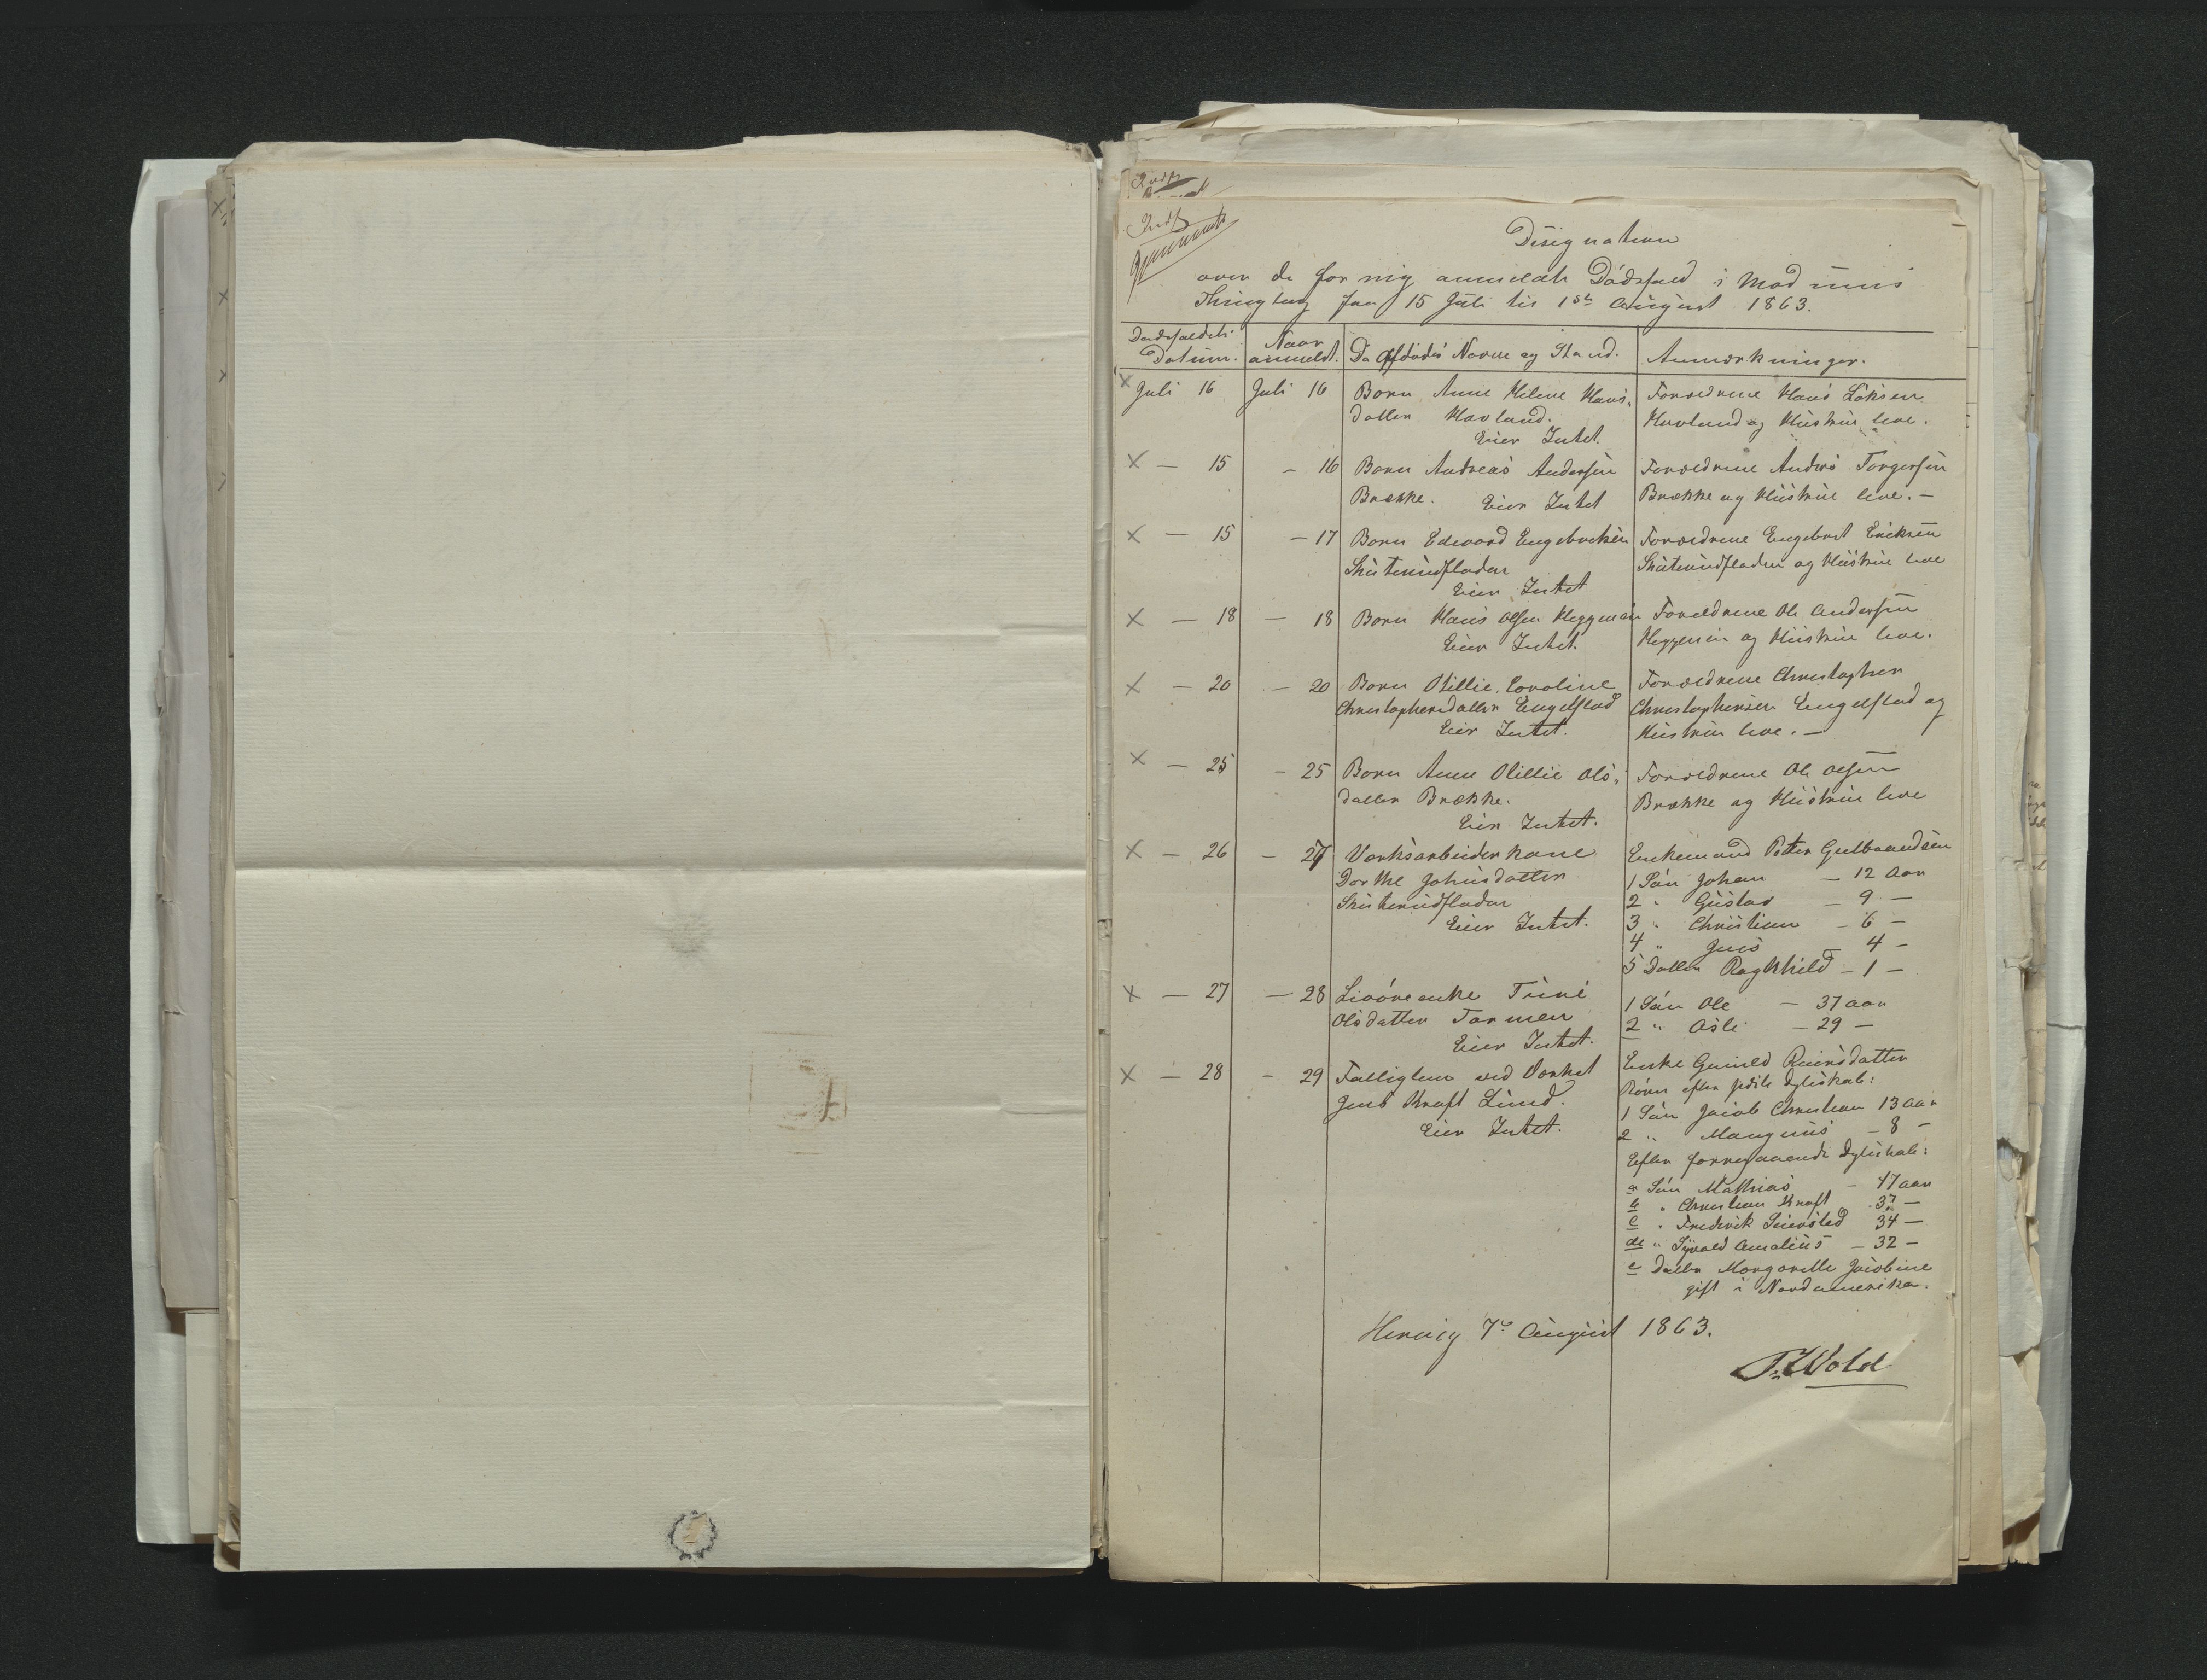 Indf
Gjennemset
Designation
over de for mig anmeldte Dödsfald i Modums
Thinglag fra 15 Juli til 1ste August 1863.
Dødsfaldets Datum.
Naar anmeldt.
De Afdødes Navne og Stand.
Anmærkninger.
× Juli 16
Juli 16
Barn Anne Helene Hans-
datter Hovland.
Eier Intet.
Forældrene Hans
Hovland og Hustru leve.
× — 15
— 16
Barn Andreas Andersen
Brække. Eier Intet
Forældrene Anders Torgersen
Brække og Hustru leve. —
× — 15
— 17
Barn Edvard Engebretsen
Skuterudfladen
Eier Intet
Forældrene Engebret Eriksen
Skuterudfladen og Hustru leve
× — 18
— 18
Barn Hans Olsen Heggerud
Eier Intet.
Forældrene Ole Andersen
og Hustru leve.
× — 20
— 20
Barn Otillie Caroline
Christophersdatter Engelstad
Eier Intet.
Forældrene Christopher
Christophersen Engelstad og
Hustru leve. —
× — 25
— 25
Barn Anne Otillie Ols-
datter Brække.
Eier Intet.
Forældrene Ole Olsen
Brække og Hustru leve
× — 26
— 27
Værksarbeiderkone
Dorthe Johnsdatter
Skuterudfladen
Eier Intet.
Enkemand Peter Gulbrandsen
1 Sön Johan — 12 Aar
2 " Gustav — 9 —
3 " Christian — 6 —
4 " Jens 4 —
5 Datter Raghhild — 1 —
× — 27
— 28
Livöreenke Trine
Olsdatter Formen
Eier Intet.
1 Sön Ole — 37 aar
2 " Asle — 29 —
× — 28
— 29
Fattiglem ved Værket
Jens Kraft Lund.
Eier Intet.
Enke Gunild Reiersdatter
Börn efter sidste Ægteskab:
1 Sön Jacob Christian 13 aar
2 " Mangnus — 8 —
Efter forregaaende Ægteskab:
a Sön Mathias — 47 aar
b " Christian Kraft 37 —
c " Frederik Seiersted 34 —
d " Sivald Amalius — 32 —
e Datter Margarethe Jacobine
gift i Nordamerika.
Hervig 7de August 1863.
T. Wold